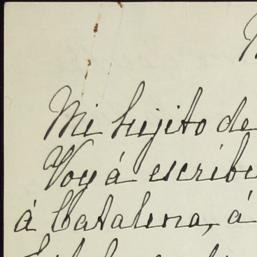 Mi hijito de
Voy á escribi
á Catalina, á